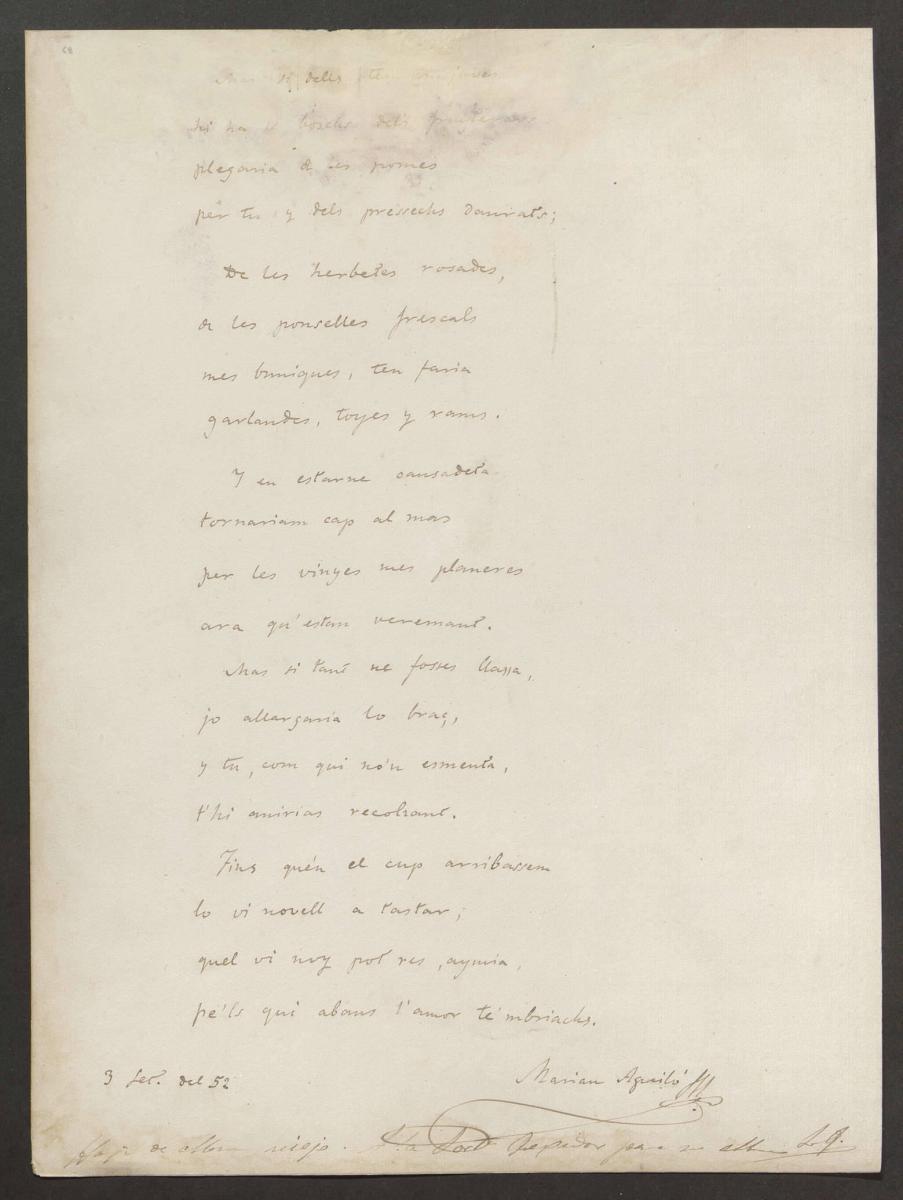 68
Mas si dells
hi ha
plegaria de les pomes
per tu y dels pressechs daurats;
De les herbetes rosades,
de les ponselles frescals
mes buniques, ten faria
garlandes, toyes y rams.
Y en estarne cansadeta
tornariam cap al mas
per les vinyes mes planeres
ara qu'estan veremant.
Mas si tant ne fosses llassa,
jo allargaria lo braç,
y tu, com qui no'u esmenta,
t'hi anirias recolzant.
Fins quén el cup arribassem
lo vi novell a tastar;
quel vi noy pot res, aymia,
pe'ls qui abans l'amor té mbriachs.
3 Set. del 52
Marian Aguiló
de album viejo. para su album